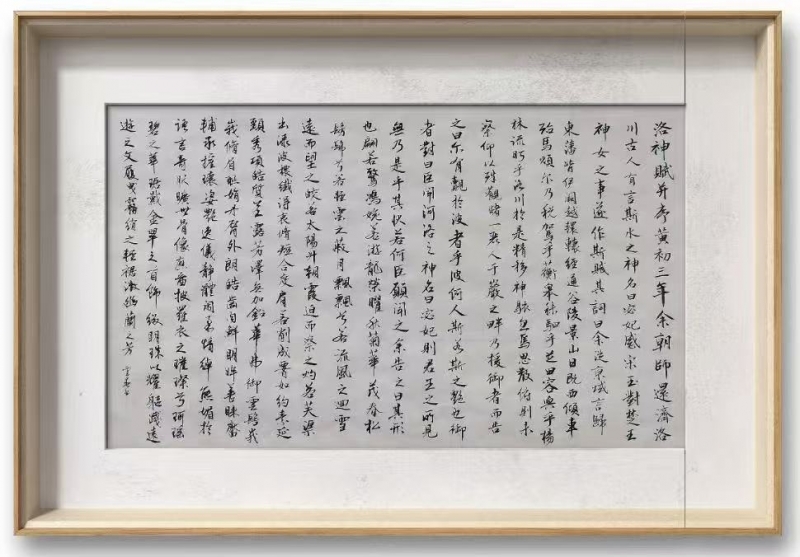 洛神賦并序黃初三年余朝師還濟洛
川古人有言斯水之神名曰宓妃感宋玉對楚王
神女之事遂作斯賦其詞曰余從京域言歸
東藩背伊闕越轘轅經通谷陵景山日既西傾車
殆馬煩尔乃稅駕乎蘅皋秣駟乎芝田容與乎楊
林流眄乎洛川於是精移神駭忽焉思散俯則未
察仰以殊觀睹一麗人于巖之畔乃援御者而告
之曰尔有覿於彼者乎彼何人斯若斯之艷也御
者對曰臣聞河洛之神名曰宓妃則君王之所見
無乃是乎其狀若何臣願聞之余告之曰其形
也翩若驚鴻婉若游龍榮曜秋菊華茂春松
髣髴兮若輕雲之蔽月飄飄兮若流風之迴雪
遠而望之皎若太陽升朝霞迫而察之灼若芙蕖
出淥波穠纖得衷脩短合度肩若削成腰如約素延
頸秀項皓質呈露芳澤無加鉛華弗御雲髻峩
峩脩眉聯娟丹脣外朗皓齒內鮮明眸善睞靨
輔承權瓌姿艷逸儀靜體閑柔情綽態媚於
語言奇服曠世骨像應圖披羅衣之璀璨兮珥瑤
碧之華琚戴金翠之首飾綴明珠以耀軀踐遠
遊之文履曳霧綃之輕裾微幽蘭之芳